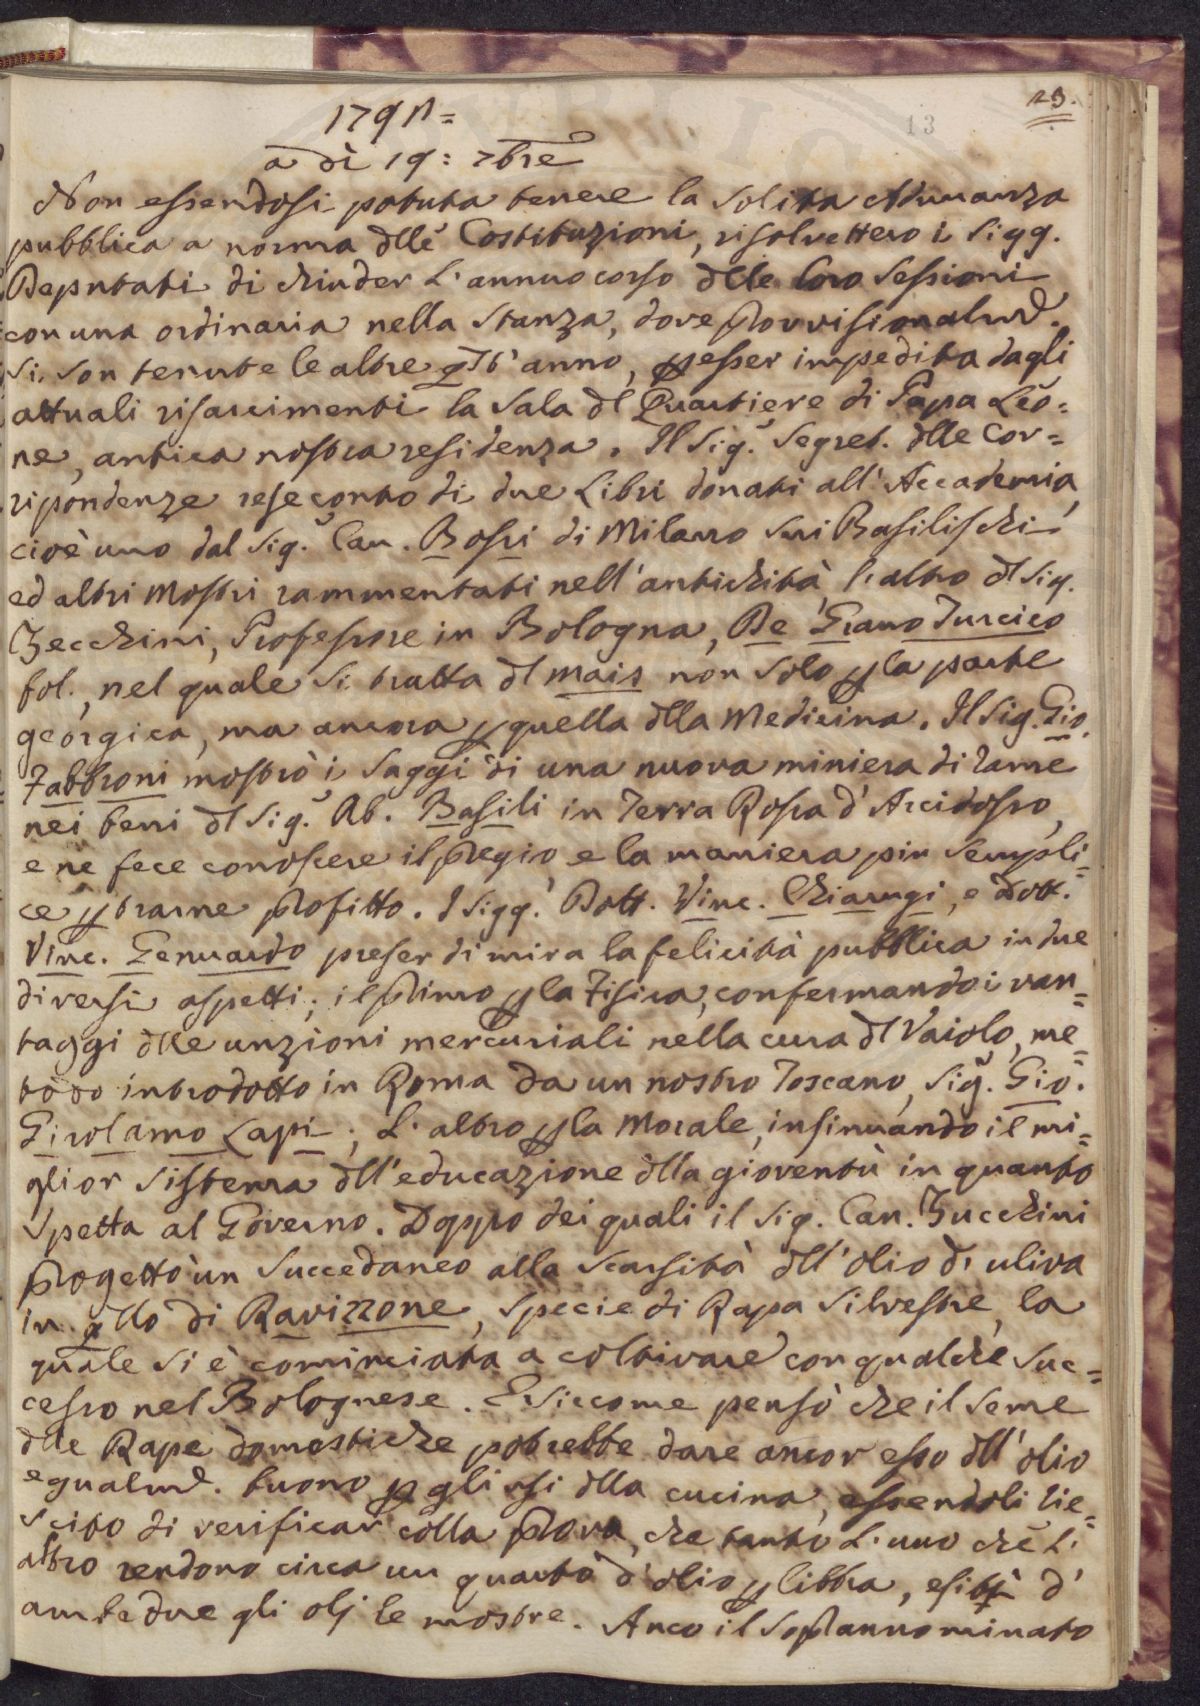 23.
13
179
a dì 19: 7bre
Non essendosi potuta tenere la solita Adunanza
pubblica a norma dlle Costituzioni, risolvettero i Sigg.
Deputati di chiuder l'annuo corso dlle loro Sessioni
con una ordinaria nella stanza, dove provvisionalmte.
si son tenute le altre qst'anno, p esser impedita dagli
attuali risarcimenti la Sala dl Quartiere di Papa Leo=
ne, antica nostra residenza. Il Sig. Segret. dlle Cor=
ripondenze rese conto di due Libri donati all'Accademia,
cioè uno dal Sig. Can. Bossi di Milano sui Basilischi
ed altri Mostri rammentati nell'antichità, l'altro dl Sig.
Zecchini, Professore in Bologna, De Grano Turcico
fol., nel quale si tratta dl mais non solo p la parte
georgica, ma ancora p quella dlla Medicina. Il Sig. Gio.
Fabbroni mostrò i saggi di una nuova miniera di rame
nei beni dl Sig. Ab. Basili in Terra Rossa d'Arcidosso,
e ne fece conoscere il pregio, e la maniera più sempli=
ce p trarne profitto. I Sigg. Dott. Vinc. Chiarugi, e Dott.
Vinc. Gennardo preser di mira la felicità pubblica in due
diversi aspetti; il primo p la Fisica, confermando i van=
taggi dlle unzioni mercuriali nella cura dl Vaiolo, me=
todo introdotto in Roma da un nostro Toscano, Sig. Gio.
Girolamo Lapi; l'altro p la Morale, insinuando il mi=
glior sistema dll'educazione dlla gioventù in quanto
spetta al Governo. Doppo dei quali il Sig. Can. Zucchini
progettò un succedaneo alla scarsità dll'olio d'uliva
in qllo di Ravizzone, specie di Rapa silvestre, la
quale si è cominciata a coltivare con qualche suc=
cesso nel Bolognese. E siccome pensò che il seme
dlle Rape domestiche potrebbe dare ancor esso dll'olio
egualmte. buono p gli usi dlla cucina, essendoli rie=
scito di verificar colla prova, che tanto l'uno che l'
altro rendono circa un quarto d'olio p libbra, esibì d'
ambedue gli olj le mostre. Anco il soprannominato